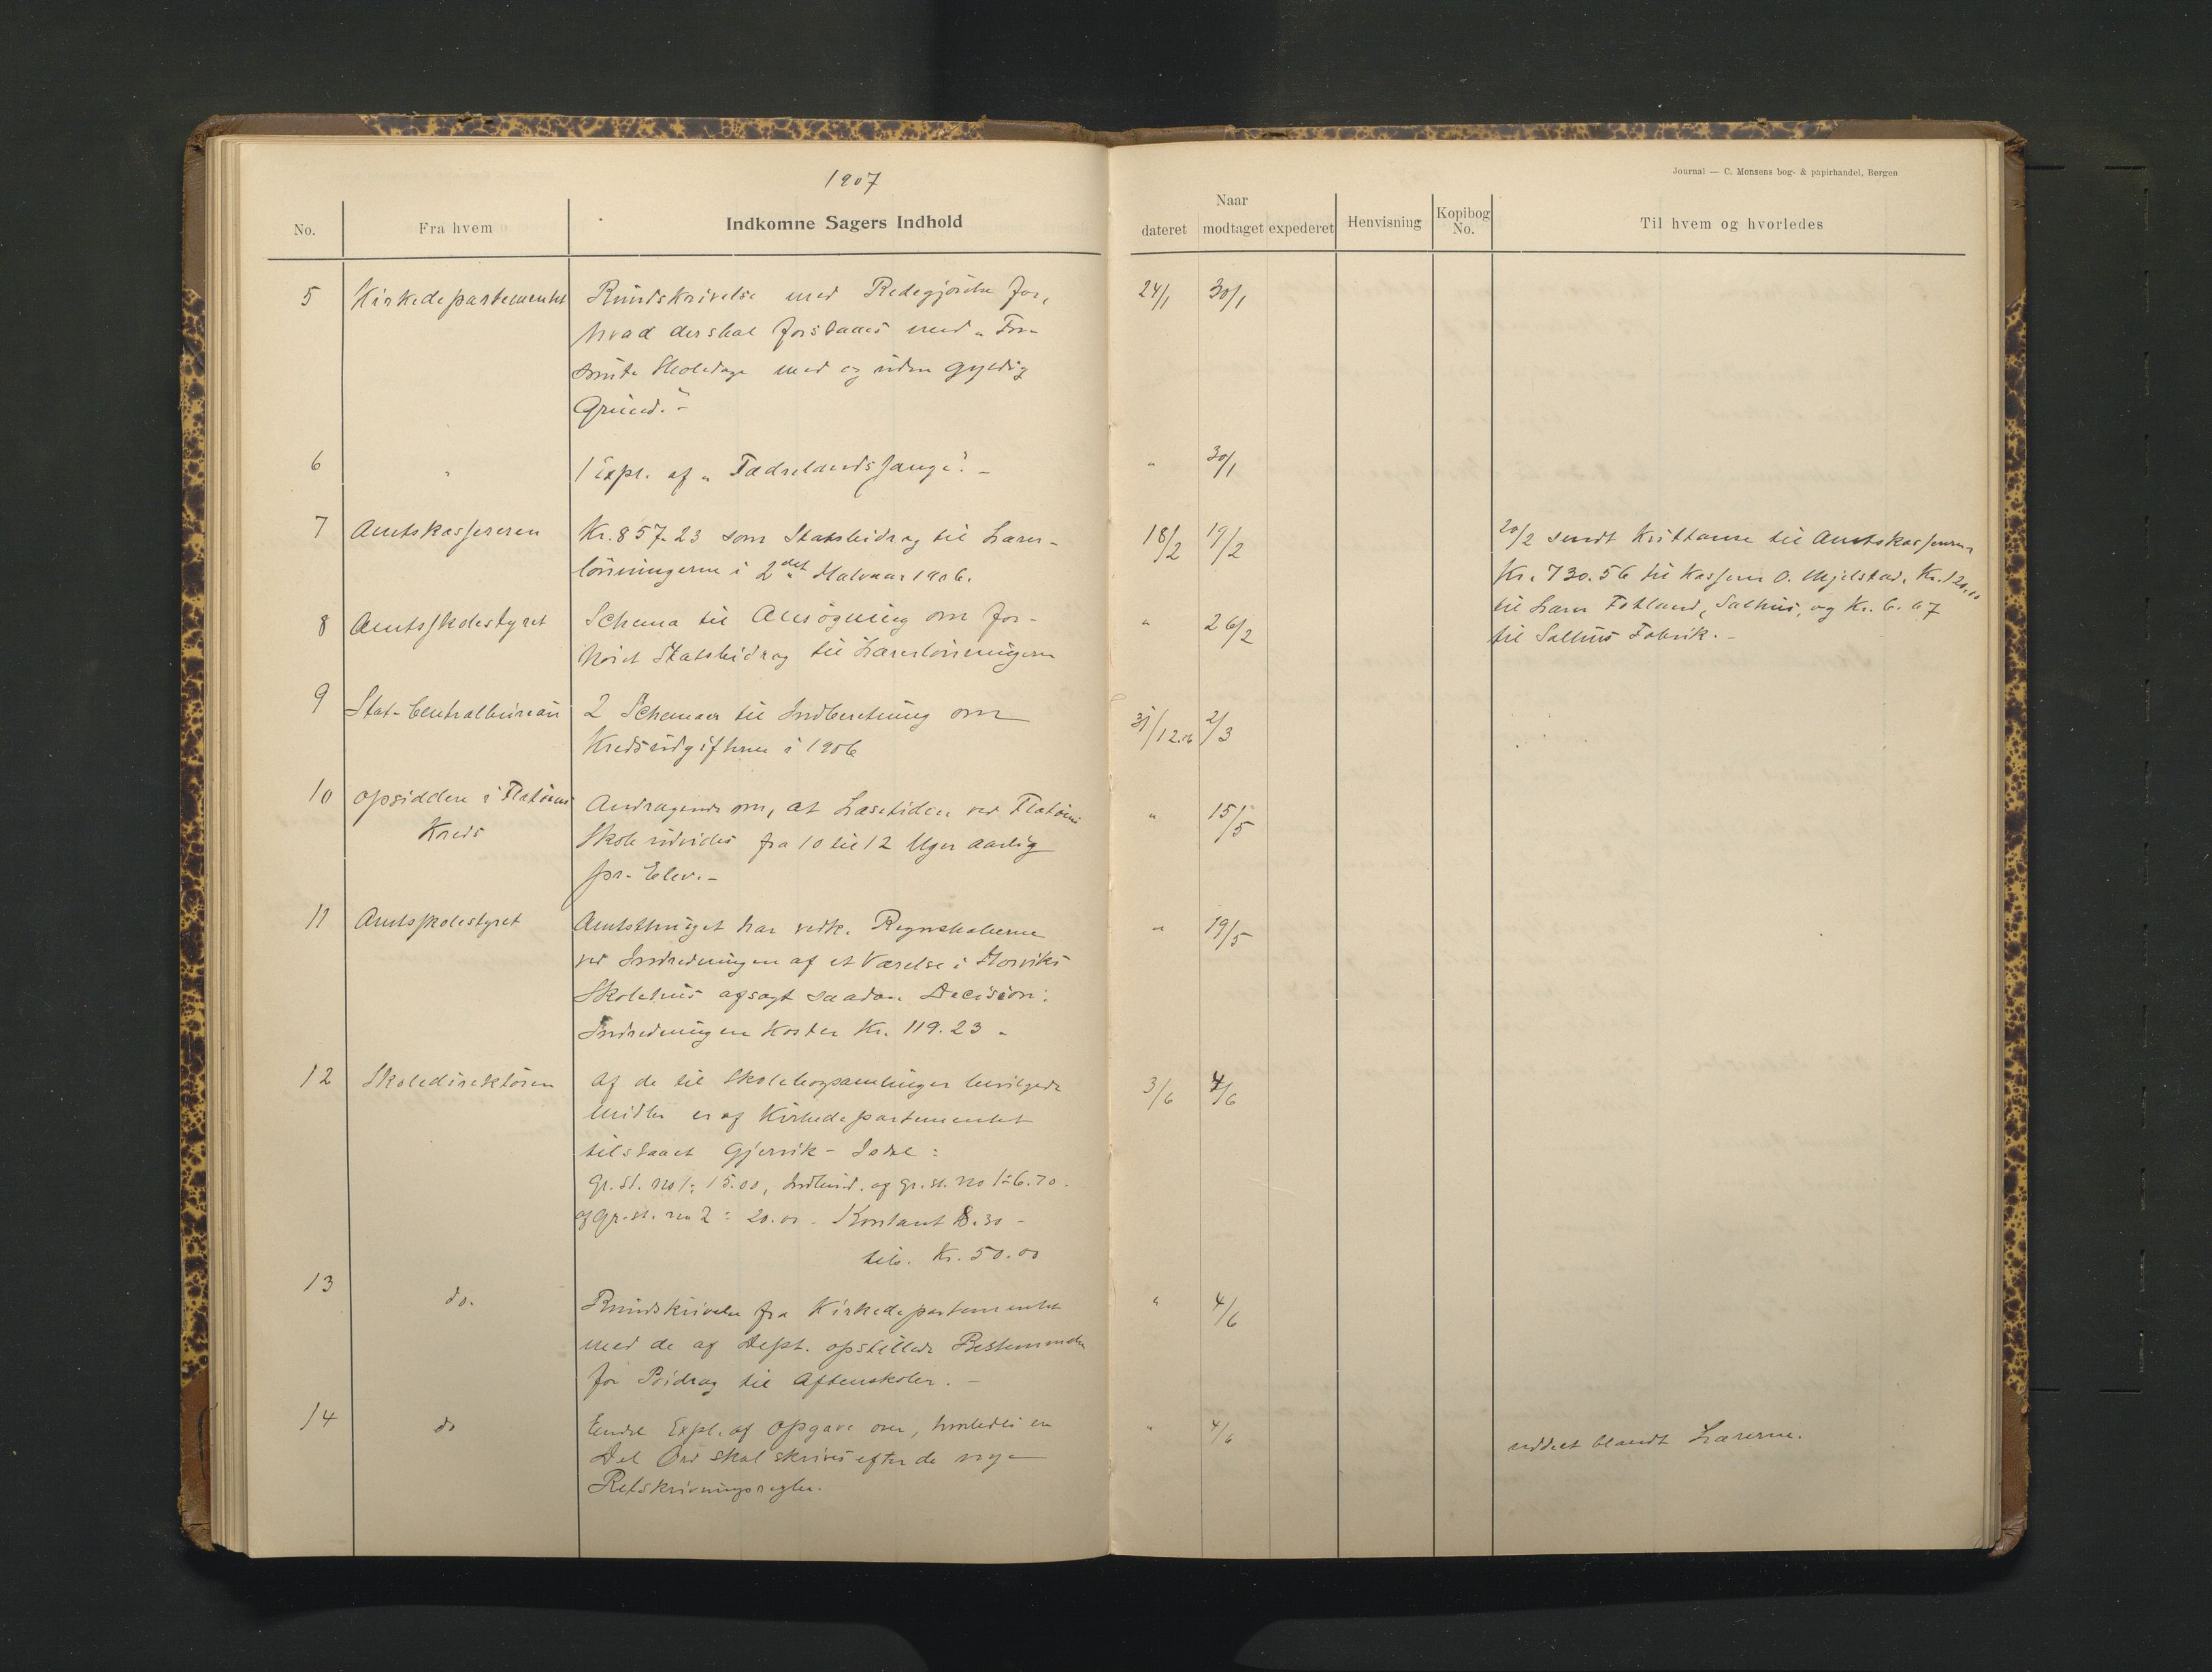 1907
Journal — C. Monsens bog- & papirhandel, Bergen
No.
Fra hvem
Indkomne Sagers Indhold
Naar
dateret
modtaget
expederet
Henvisning
Kopibog
No.
Til hvem og hvorledes
5 Kirkedepartementet Rundskrivelse med Redegjørelse for, 24/1 30/1
hvad der skal forstaaes med „For-
sømte Skoledage med og uden gyldig
Grund."-
6 " 1 Expl. af „Fædrelandssange". - " 30/1
7 Amtskassereren Kr. 857.23 som Statsbidrag til Lærer- 18/2 19/2 20/2 sendt Kvittance til Amtskassereren
lønningerne i 2det Halvaar 1906. Kr. 730.56 til Kasserer O. Mjelstad, Kr. 120.00
8 Amtsskolestyret Schema til Ansøgning om for- " 26/2 til Lærer Fotland, Salhus, og Kr. 6.67
høiet Statsbidrag til Lærerlønningerne til Salhus Fabrik. -
9 Stat. Centralbureau 2 Schemaer til Indberetning om 31/12.06 2/3
Kredsudgifterne i 1906
10 Opsiddere i Flatøens Andragende om, at Læsetiden ved Flatøens " 15/5
Kreds Skole udvides fra 10 til 12 Uger aarlig
pr. Elev. -
11 Amtsskolestyret Amtsthinget har vedk. Regnskaberne " 19/5
ved Indredningen af et Værelse i Morviks
Skolehus afsagt saadan Decision:
Indredningen koster Kr. 119.23 -
12 Skoledirektøren Af de til Skolebogsamlinger bevilgede 3/6 4/6
Midler er af Kirkedepartementet
tilstaaet Gjervik-Isdal:
Gr. st. no 1: 15.00, Indbind. af gr. st. no 1: 6.70.
af gr. st. no 2: 20.00 - Kontant 8.30 -
tils. Kr. 50.00
13 do. Rundskrivelse fra Kirkedepartementet " 4/6
med de af Dept. opstillede Bestemmelser
for Bidrag til Aftenskoler. -
14 do Endel Expl. af Opgave over, hvorledes en " 4/6 uddelt blandt Lærerne.
Del Ord skal skrives efter de nye
Retskrivningsregler.